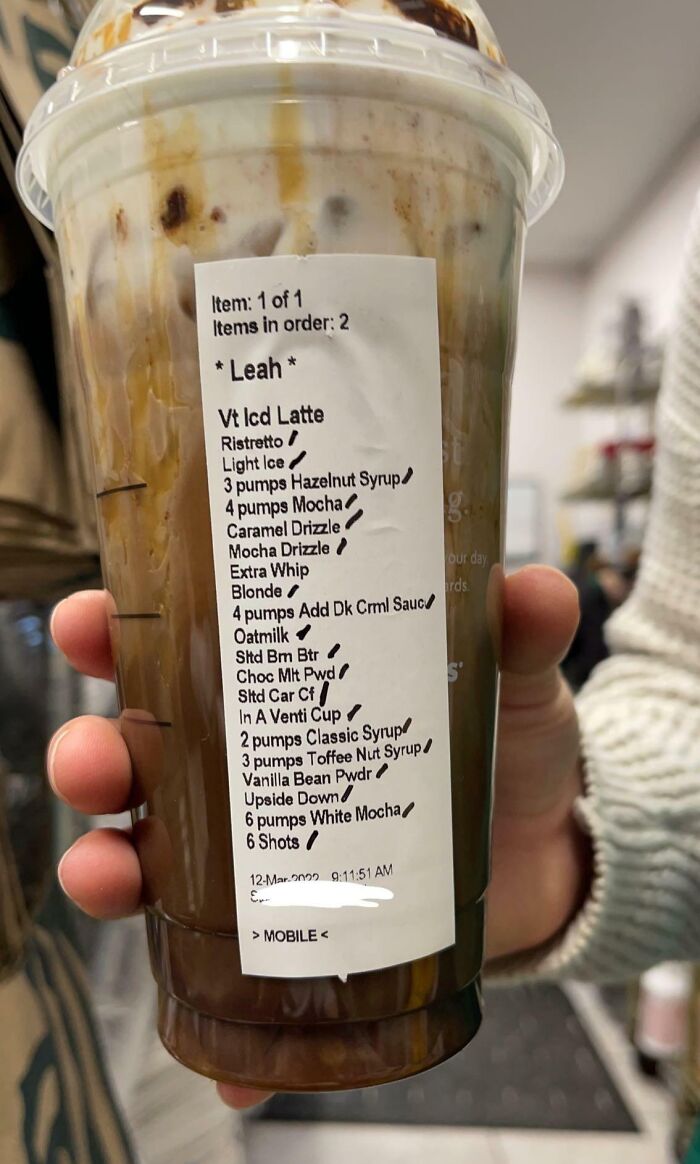 Item: 1 of 1
Items in order: 2
* Leah *
Vt Icd Latte
Ristretto
Light Ice
3 pumps Hazelnut Syrup
4 pumps Mocha
Caramel Drizzle
Mocha Drizzle
Extra Whip
Blonde
4 pumps Add Dk Crml Sauc
Oatmilk
Sltd Brn Btr
Choc Mlt Pwd
Sltd Car Cf
In A Venti Cup
2 pumps Classic Syrup
3 pumps Toffee Nut Syrup
Vanilla Bean Pwdr
Upside Down
6 pumps White Mocha
6 Shots
12-Mar-2022 9:11:51 AM
> MOBILE <
st
g.
our day
rds.
s'